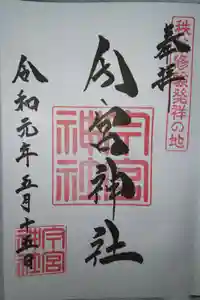 秩父修験発祥の地
奉拝
今宮神社
今宮神社
令和元年五月十五日
今宮神社